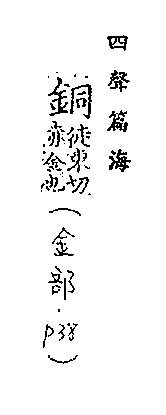 四聲篇海
銅徒東切赤金也(金部.p38)